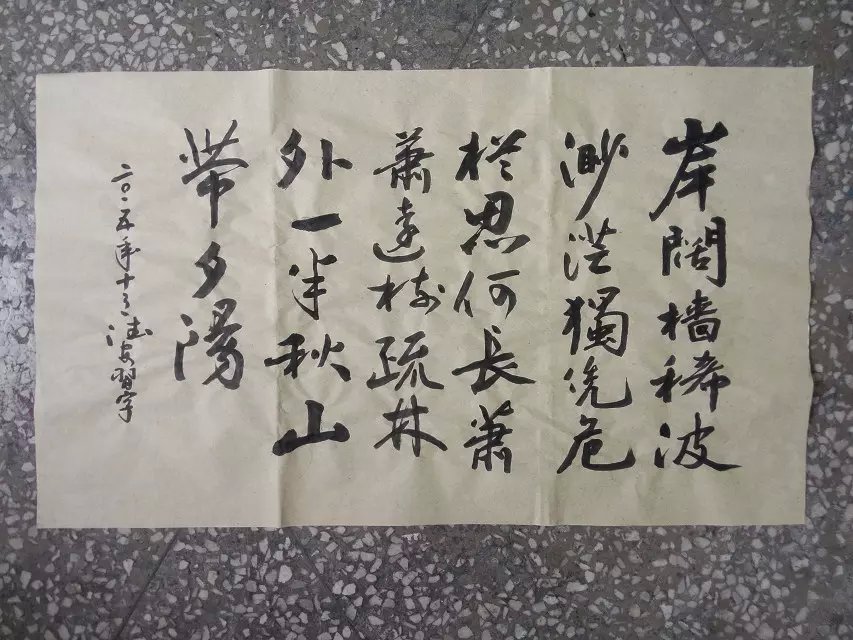 岸闊檣稀波
渺茫獨凭危
栏思何長蕭
蕭遠樹疏林
外一半秋山
帶夕陽
二〇一五年十二 习字